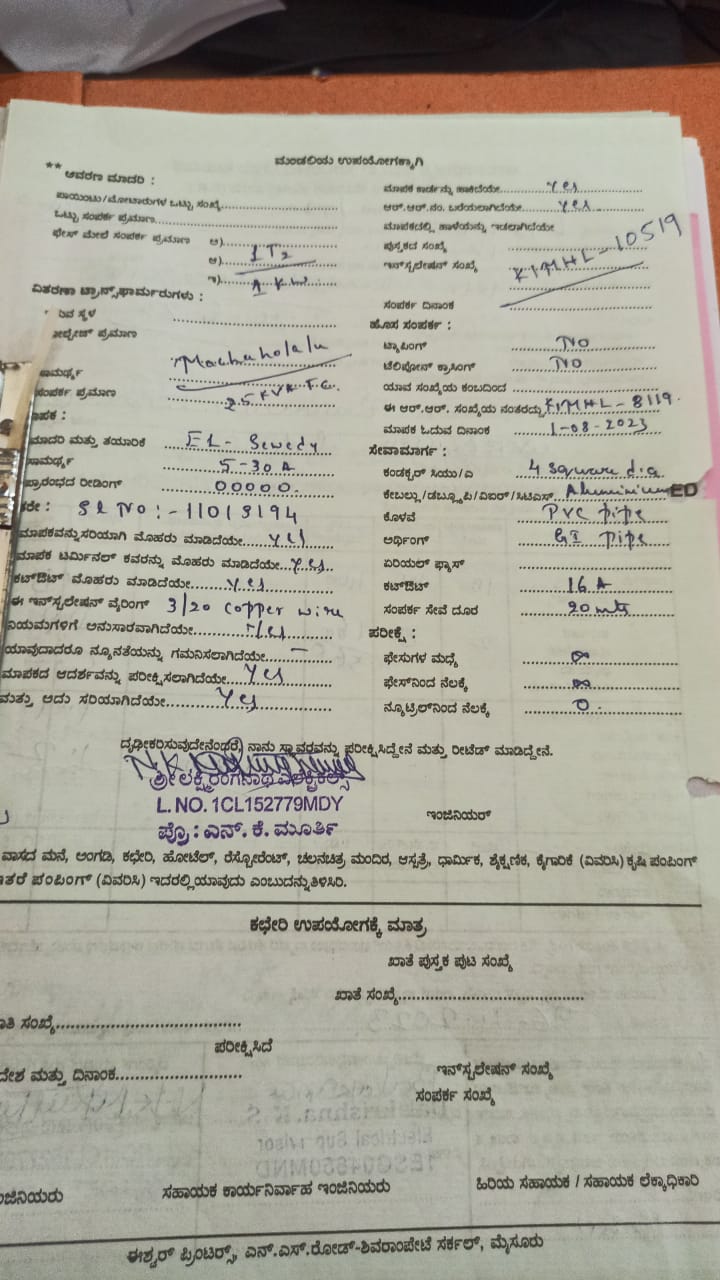 ಮಂಡಲಿಯ ಉಪಯೋಗಕ್ಕಾಗಿ
** ಆವರಣ ಮಾದರಿ :
ಪಾಯಿಂಟು/ಮೋಟಾರುಗಳ ಒಟ್ಟು ಸಂಖ್ಯೆ
ಒಟ್ಟು ಸಂಪರ್ಕ ಪ್ರಮಾಣ
ಫೇಸ್ ಮೇಲೆ ಸಂಪರ್ಕ ಪ್ರಮಾಣ ಅ)
ಆ)
ಇ)
ವಿತರಣಾ ಟ್ರಾನ್ಸ್‌ಫಾರ್ಮರುಗಳು :
ಸ್ಥಳ
ಪ್ರಮಾಣ Machaholalu
ಸಾಮರ್ಥ್ಯ
ಸಂಪರ್ಕ ಪ್ರಮಾಣ 25 KVA T.C.
ಮಾಪಕ :
ಮಾದರಿ ಮತ್ತು ತಯಾರಿಕೆ EL- Sewedy
ಸಾಮರ್ಥ್ಯ 5-30 A
ಪ್ರಾರಂಭದ ರೀಡಿಂಗ್ 00000.
ಕರೇ : Sl No :- 11013194
ಮಾಪಕವನ್ನು ಸರಿಯಾಗಿ ಮೊಹರು ಮಾಡಿದೆಯೇ yes
ಮಾಪಕ ಟರ್ಮಿನಲ್ ಕವರನ್ನು ಮೊಹರು ಮಾಡಿದೆಯೇ yes
ಕಟ್‌ಔಟ್ ಮೊಹರು ಮಾಡಿದೆಯೇ yes
ಈ ಇನ್‌ಸ್ಟಲೇಷನ್ ವೈರಿಂಗ್ 3/20 copper wire
ನಿಯಮಗಳಿಗೆ ಅನುಸಾರವಾಗಿದೆಯೇ yes
ಯಾವುದಾದರೂ ನ್ಯೂನತೆಯನ್ನು ಗಮನಿಸಲಾಗಿದೆಯೇ –
ಮಾಪಕದ ಆದರ್ಶವನ್ನು ಪರೀಕ್ಷಿಸಲಾಗಿದೆಯೇ yes
ಮತ್ತು ಅದು ಸರಿಯಾಗಿದೆಯೇ yes
ಮಾಪಕ ಕಾರ್ಡನ್ನು ಹಾಕಿದೆಯೇ yes
ಆರ್.ಆರ್.ನಂ. ಬರೆಯಲಾಗಿದೆಯೇ yes
ಮಾಪಕದಲ್ಲಿ ಹಾಳೆಯನ್ನು ಇಡಲಾಗಿದೆಯೇ
ಪುಸ್ತಕದ ಸಂಖ್ಯೆ
ಇನ್‌ಸ್ಟಲೇಷನ್ ಸಂಖ್ಯೆ KIMHL-10519
ಸಂಪರ್ಕ ದಿನಾಂಕ
ಹೊಸ ಸಂಪರ್ಕ :
ಟ್ಯಾಪಿಂಗ್ NO
ಟೆಲಿಫೋನ್ ಕ್ರಾಸಿಂಗ್ NO
ಯಾವ ಸಂಖ್ಯೆಯ ಕಂಬದಿಂದ
ಈ ಆರ್.ಆರ್. ಸಂಖ್ಯೆಯ ನಂತರದ್ದು KIMHL-8119.
ಮಾಪಕ ಓದುವ ದಿನಾಂಕ 1-08-2023
ಸೇವಾಮಾರ್ಗ :
ಕಂಡಕ್ಟರ್ ಸಿಯು/ಎ 4 square d.c
ಕೇಬಲ್ಲು/ಡಬ್ಲ್ಯೂಪಿ/ವಿಐರ್/ಸಿಟಿಎಸ್ Aluminium ED
ಕೊಳವೆ PVC pipe
ಅರ್ಥಿಂಗ್ GI pipe
ಏರಿಯಲ್ ಫ್ಯೂಸ್
ಕಟ್‌ಔಟ್ 16 A
ಸಂಪರ್ಕ ಸೇವೆ ದೂರ 20 mts
ಪರೀಕ್ಷೆ :
ಫೇಸುಗಳ ಮಧ್ಯೆ ∞
ಫೇಸ್‌ನಿಂದ ನೆಲಕ್ಕೆ ∞
ನ್ಯೂಟ್ರಿಲ್‌ನಿಂದ ನೆಲಕ್ಕೆ 0
ದೃಢೀಕರಿಸುವುದೇನೆಂದರೆ, ನಾನು ಸ್ಥಾವರವನ್ನು ಪರೀಕ್ಷಿಸಿದ್ದೇನೆ ಮತ್ತು ರೀಟೆಡ್ ಮಾಡಿದ್ದೇನೆ.
ಶ್ರೀ ಲಕ್ಷ್ಮಿರಂಗನಾಥ ಎಲೆಕ್ಟ್ರಿಕಲ್ಸ್
L. NO. 1CL152779MDY
ಪ್ರೊ : ಎನ್. ಕೆ. ಮೂರ್ತಿ
ಇಂಜಿನಿಯರ್
ವಾಸದ ಮನೆ, ಅಂಗಡಿ, ಕಛೇರಿ, ಹೋಟೆಲ್, ರೆಸ್ಟೋರೆಂಟ್, ಚಲನಚಿತ್ರ ಮಂದಿರ, ಆಸ್ಪತ್ರೆ, ಧಾರ್ಮಿಕ, ಶೈಕ್ಷಣಿಕ, ಕೈಗಾರಿಕೆ (ವಿವರಿಸಿ) ಕೃಷಿ ಪಂಪಿಂಗ್
ಇತರೆ ಪಂಪಿಂಗ್ (ವಿವರಿಸಿ) ಇದರಲ್ಲಿ ಯಾವುದು ಎಂಬುದನ್ನು ತಿಳಿಸಿರಿ.
ಕಛೇರಿ ಉಪಯೋಗಕ್ಕೆ ಮಾತ್ರ
ಖಾತೆ ಪುಸ್ತಕ ಪುಟ ಸಂಖ್ಯೆ
ಖಾತೆ ಸಂಖ್ಯೆ
ಸಂಖ್ಯೆ
ಪರೀಕ್ಷಿಸಿದೆ
ಮತ್ತು ದಿನಾಂಕ
ಇನ್‌ಸ್ಟಲೇಷನ್ ಸಂಖ್ಯೆ
ಸಂಪರ್ಕ ಸಂಖ್ಯೆ
ಸಹಾಯಕ ಕಾರ್ಯನಿರ್ವಾಹ ಇಂಜಿನಿಯರು
ಹಿರಿಯ ಸಹಾಯಕ / ಸಹಾಯಕ ಲೆಕ್ಕಾಧಿಕಾರಿ
ಈಶ್ವರ್ ಪ್ರಿಂಟರ್ಸ್, ಎನ್.ಎಸ್.ರೋಡ್-ಶಿವರಾಂಪೇಟೆ ಸರ್ಕಲ್, ಮೈಸೂರು